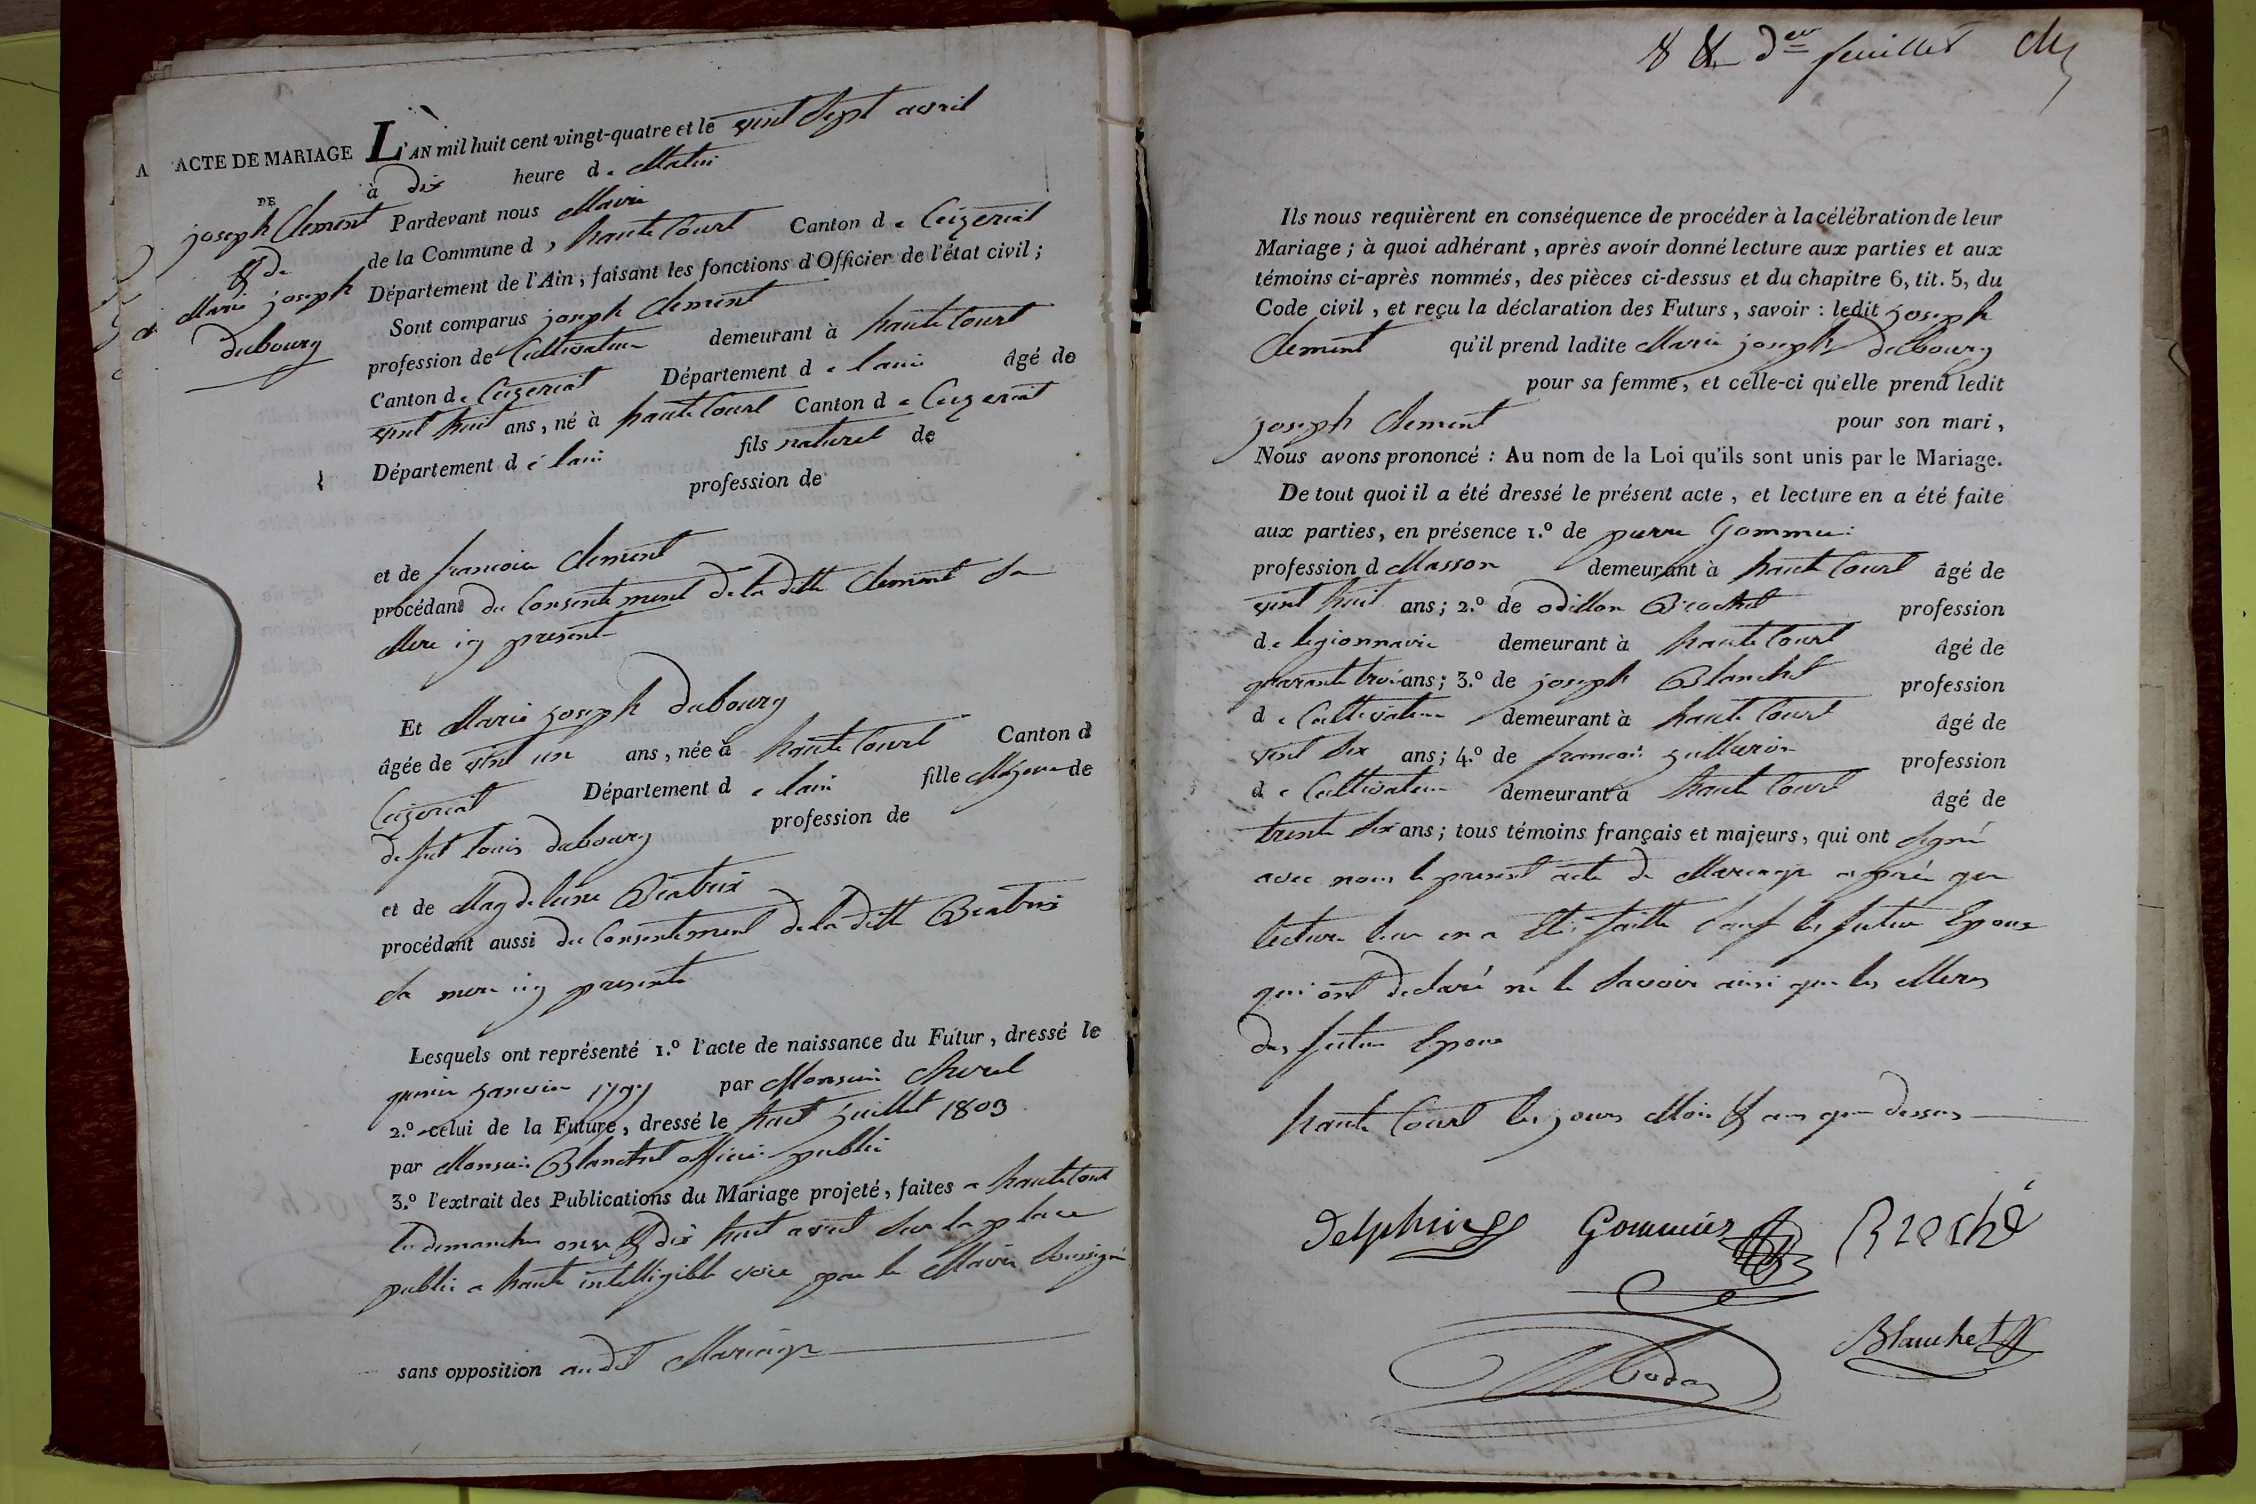 ACTE DE MARIAGE L'AN mil huit cent vingt-quatre et le vint Sept avril
à Dix heure d e Matin
DE
joseph Clement
& de
Marie joseph
dubourg
Pardevant nous Maire
de la Commune d haute Court Canton d e Ceizeriat
Département de l'Ain, faisant les fonctions d'Officier de l'état civil;
Sont comparus joseph Clement
profession de Cultivateur demeurant à haute Court
Canton d e Ceizeriat Département d e lain âgé de
vint huit ans, né à haute Court Canton d e Ceizeriat
Département d e lain fils naturel de
profession de
et de francoise Clement
procédant du Consentement De la ditte Clement Sa
Mere icy presente
Et Marie joseph Dubourg
âgée de vint un ans, née à haute Court Canton d
Ceizeriat Département d e lain fille Majeure de
defut louis dubourg profession de
et de Magdeleine Beatrix
procédant aussi du Consentement De la ditte Beatrix
Sa mere icy presente
Lesquels ont représenté 1.º l'acte de naissance du Futur, dressé le
janvier 179 par Monsieur
2.º celui de la Future, dressé le huit juillet 1803
par Monsieur Blanchet officier public
3.º l'extrait des Publications du Mariage projeté, faites a haute Court
les dimanches onze & dix huit avril Sur la place
public a haute intelligible voix par le Maire Soussigné
sans opposition audit Mariage
8 & der feuillet
Ils nous requièrent en conséquence de procéder à la célébration de leur
Mariage; à quoi adhérant, après avoir donné lecture aux parties et aux
témoins ci-après nommés, des pièces ci-dessus et du chapitre 6, tit. 5, du
Code civil, et reçu la déclaration des Futurs, savoir: ledit joseph
Clement qu'il prend ladite Marie joseph dubourg
pour sa femme, et celle-ci qu'elle prend ledit
joseph Clement pour son mari,
Nous avons prononcé: Au nom de la Loi qu'ils sont unis par le Mariage.
De tout quoi il a été dressé le présent acte, et lecture en a été faite
aux parties, en présence 1.º de pierre Gommer
profession d Masson demeurant à haute Court âgé de
vint huit ans; 2.º de odillon Brochet profession
d e legionnaire demeurant à haute Court âgé de
quarante trois ans; 3.º de joseph Blanchet profession
d e Cultivateur demeurant à haute Court âgé de
vint Six ans; 4.º de francois profession
d e Cultivateur demeurant à haute Court âgé de
trente Six ans; tous témoins français et majeurs, qui ont Signé
avec nous le present acte de Mariage après que
lecture leur en a Eté faitte Sauf les futur Epoux
qui ont declaré ne le Savoir ainsi que les Meres
des futur Epoux
haute Court les jours Mois & an que dessus
Delphin Gommier Broché
Blanchet